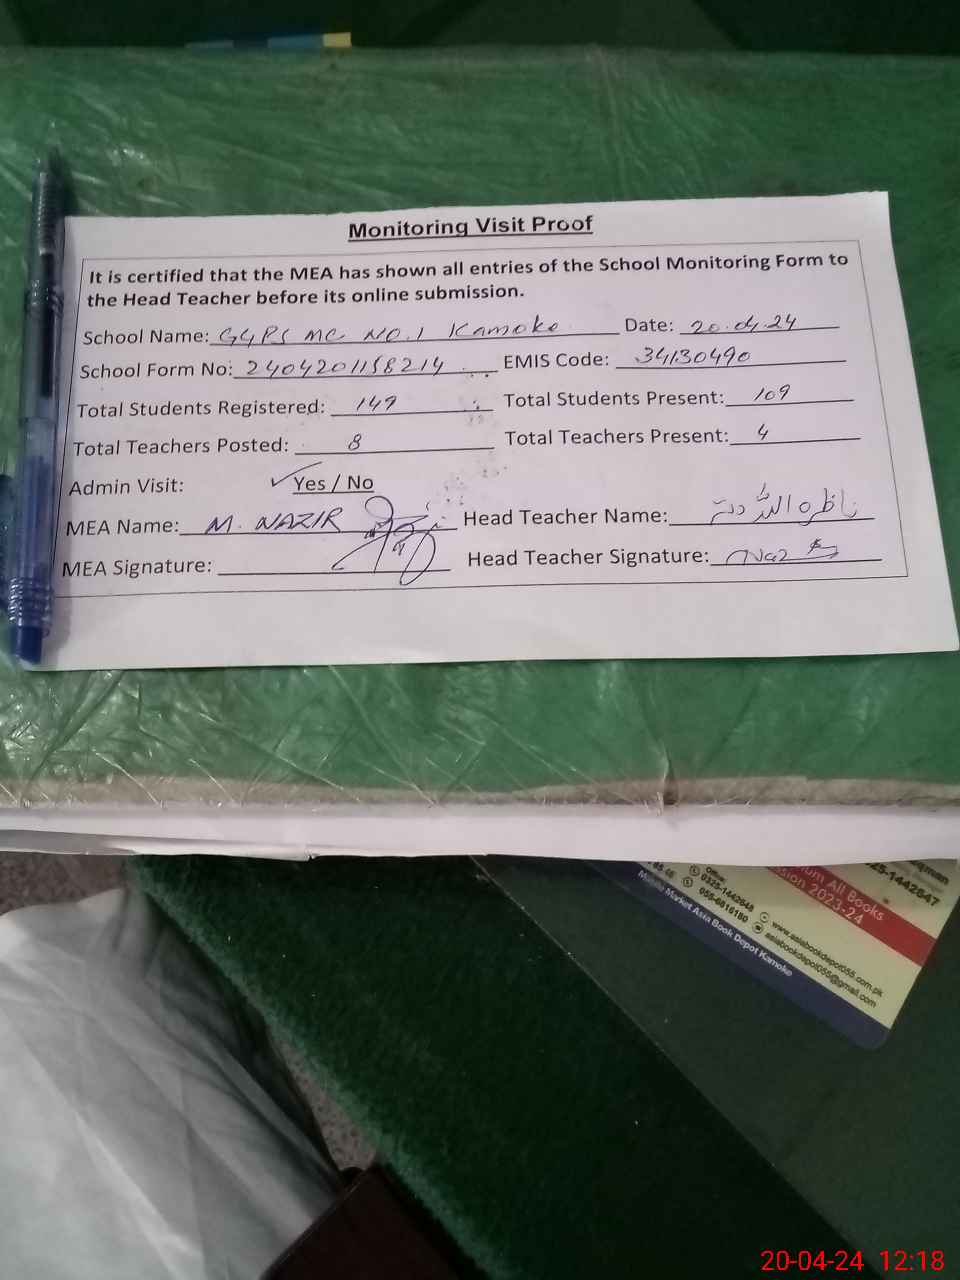 Monitoring Visit Proof
It is certified that the MEA has shown all entries of the School Monitoring Form to
the Head Teacher before its online submission.
School Name: GGPS MC NO.1 Kamoke Date: 20.04.24
School Form No: 2404201158214 EMIS Code: 34130490
Total Students Registered: 149 Total Students Present: 109
Total Teachers Posted: 8 Total Teachers Present: 4
Admin Visit: ✓ Yes / No
MEA Name: M. NAZIR Head Teacher Name:
MEA Signature: Head Teacher Signature:
qman
25-1442647
um All Books
ssion 2023-24
Office:
0325-1442648
055-6816180
www.asiabookdepot055.com.pk
asiabookdepot055@gmail.com
Mobile Market Asia Book Depot Kamoke
20-04-24 12:18